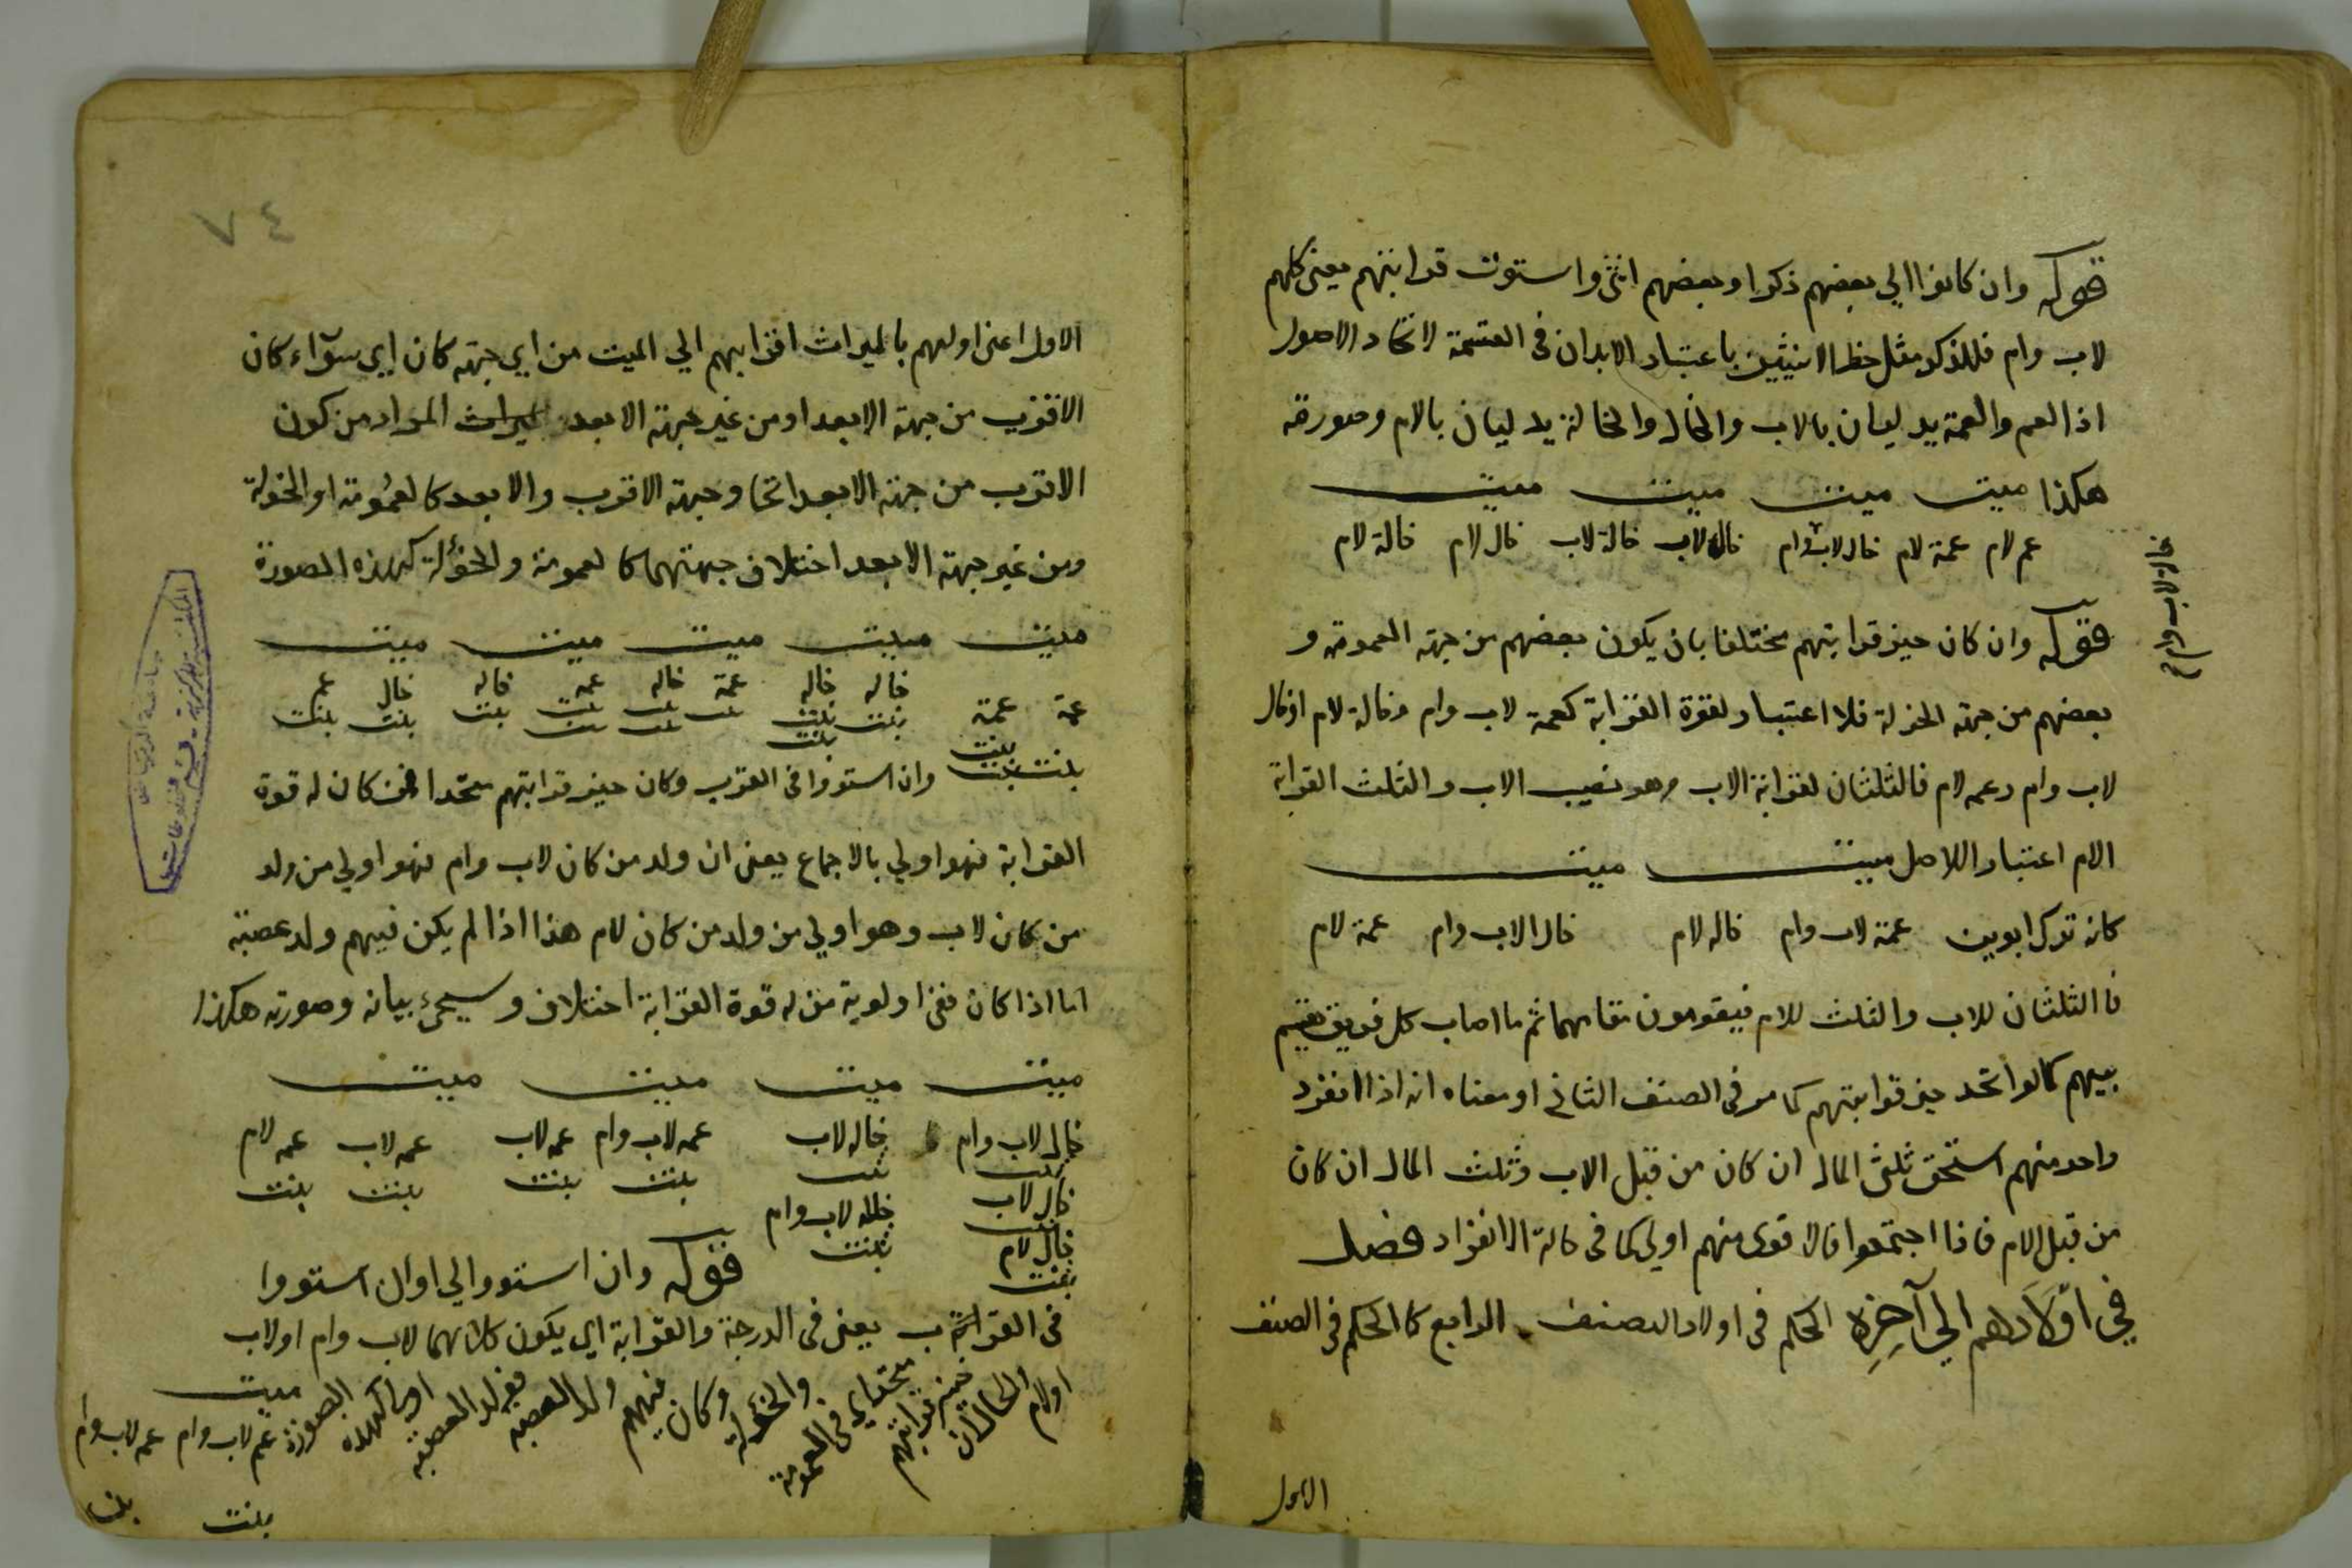 قوله وان كانوا الي بعضهم ذكرا وبعضهم انثى واستوت قرابتهم يعني كلهم
لاب وام فللذكر مثل حظ الانثيين باعتبار الابدان في القسمة لاتحاد الاصول
اذا العم والعمة يدليان بالاب والخال والخالة يدليان بالام وصورته
هكذا ميت ميت ميت ميت
عم لام عمة لام خال لاب وام خاله لاب خالة لاب خال لام خالة لام
قوله وان كان حيز قرابتهم مختلفا بان يكون بعضهم من جهة العمومة و
بعضهم من جهة الخولة فلا اعتبار لقوة القرابة كعمة لاب وام وخالة لام او خال
لاب وام وعمه لام فالثلثان لقرابة الاب وهو نصيب الاب والثلث القرابة
الام اعتبار اللاصل ميت ميت
كانه ترك ابوين عمة لاب وام خاله لام خال الاب وام عمة لام
فا الثلثان للاب والثلث للام فيقومون مقامهما ثم ما اصاب كل فريق يقسم
بينهم كما لو اتحد حيز قرابتهم كما مر في الصنف الثاني او معناه انه اذا انفرد
واحد منهم استحق ثلثى المال ان كان من قبل الاب وثلث المال ان كان
من قبل الام فاذا اجتمعوا فالاقوى منهم اولي كما في حالة الانفراد فصل
في اولادهم الي آخره الحكم في اولاد الصنف الرابع كا الحكم في الصنف
الاول
٧٤
الاول اعني اولهم بالميراث اقرابهم الي الميت من اي جهة كان اي سوآء كان
الاقرب من جهة الابعد او من غير جهة الابعد المراد من كون
الاقرب من جهة الابعد اتحاد جهة الاقرب والابعد كالعمومة او الخولة
ومن غير جهة الابعد اختلاف جهتهما كا لعمومة والخؤلة كهذه الصورة
ميت ميت ميت ميت ميت
عمة عمة خاله خاله عمة خاله عمه خاله خال عم
بنت بنت بنت بنت بنت بنت بنت
بنت بنت بنت وان استووا في القرب وكان حيز قرابتهم متحدا فمن كان له قوة
القرابة فهو اولي بالاجماع يعني ان ولد من كان لاب وام فهو اولي من ولد
من كان لاب وهو اولي من ولد من كان لام هذا اذا لم يكن فيهم ولد عصبة
اما اذا كان ففي اولوية من له قوة القرابة اختلاف وسيجئ بيانه وصورته هكذا
ميت ميت ميت ميت
خال لاب وام خاله لاب عمه لاب وام عمه لاب عمه لاب عمه لام
بنت بنت بنت بنت بنت بنت
خال لاب خاله لاب وام
بنت بنت
خال لام
بنت
قوله وان استووا الي اوان استووا
في القرب يعني في الدرجة والقرابة اي يكون كلاهما لاب وام اولاب
اولام والحال ان حيز قرابتهم متحد اي في العمومة والخؤلة وكان فيهم ولد العصبة فولد العصبة اولي كهذه الصورة
ميت
عم لاب وام عمه لاب وام
بنت بنت